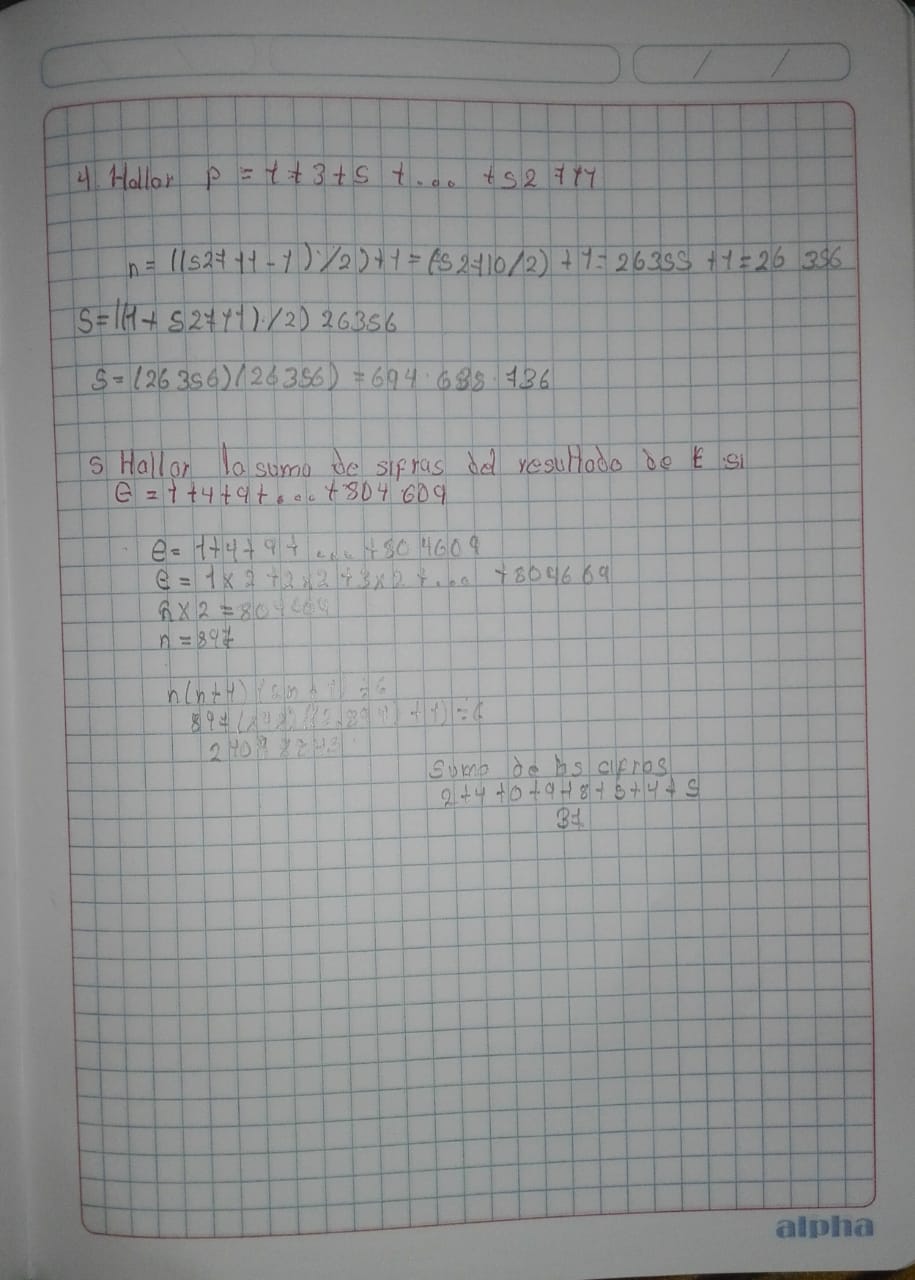 4. Hallar P = 1+3+5 +... +52 711
n= ((52711-1)/2)+1 = (52710/2) +1= 26355 +1=26 356
S=((1+ 52711)/2) 26356
S=(26356)(26356) = 694.638.736
5 Hallar la suma de sifras del resultado de E si
E = 1+4+9+...+804 609
E= 1+4+9+ ... +804609
E= 1x2+2x2+3x2+... +804609
nx2 =804609
n =897
n(n+1)
897
Suma de las cifras
2+4+0+9+8+5+4+5
37
alpha